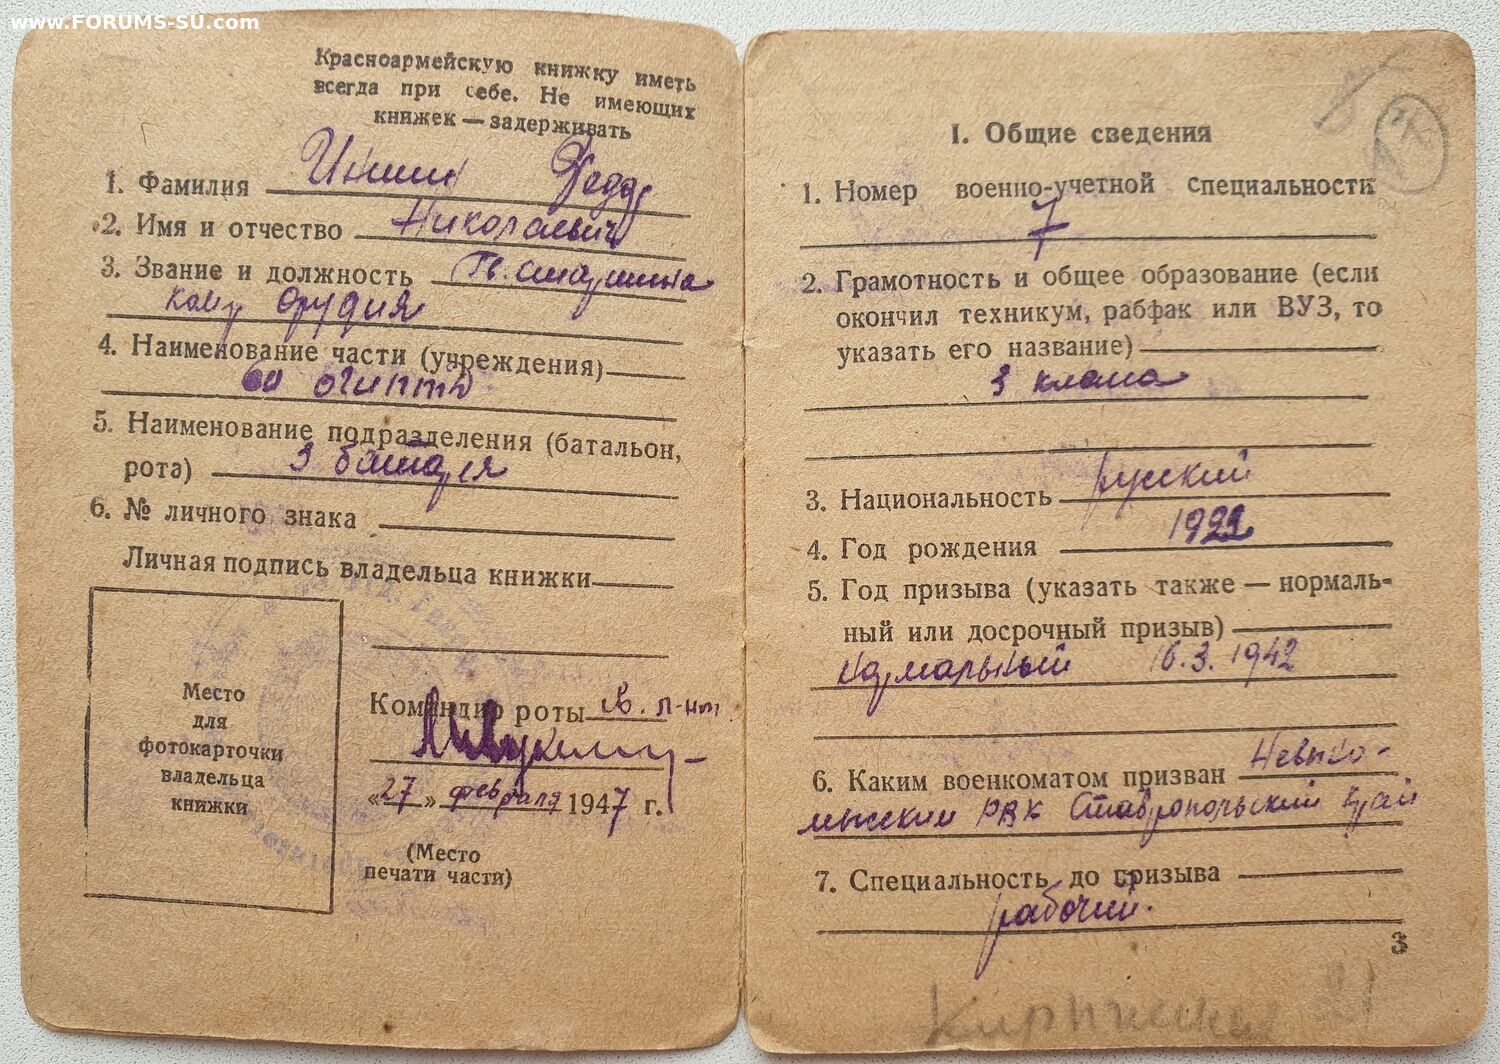 www.FORUMS-SU.com
Красноармейскую книжку иметь
всегда при себе. Не имеющих
книжек — задерживать
1. Фамилия Иншин Федор
2. Имя и отчество Николаевич
3. Звание и должность Гв. старшина
ком. орудия
4. Наименование части (учреждения)
60 огиптд
5. Наименование подразделения (батальон,
рота) 3 батарея
6. № личного знака
Личная подпись владельца книжки
Место
для
фотокарточки
владельца
книжки
Командир роты гв. л-нт
«27» февраля 1947 г.
(Место
печати части)
I. Общие сведения
1. Номер военно-учетной специальности
7
2. Грамотность и общее образование (если
окончил техникум, рабфак или ВУЗ, то
указать его название)
3 класса
3. Национальность русский
4. Год рождения 1922
5. Год призыва (указать также — нормаль-
ный или досрочный призыв)
нормальный 16.3.1942
6. Каким военкоматом призван Невино-
мысский РВК Ставропольский край
7. Специальность до призыва
рабочий.
3